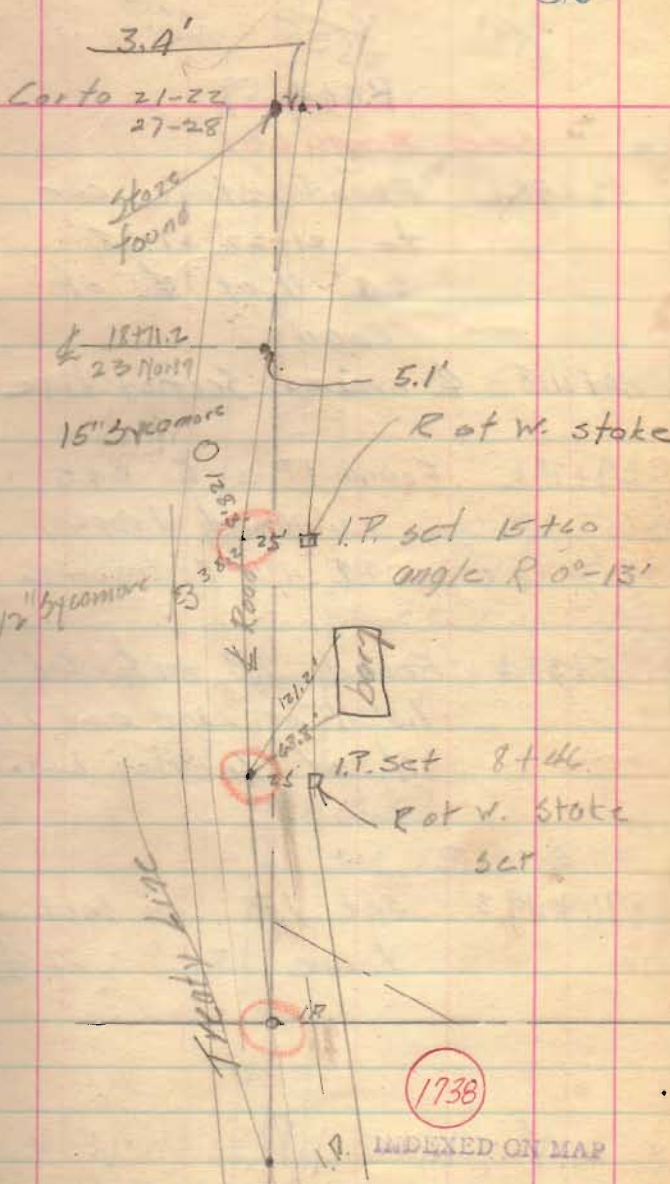 3.4'
Cor to 21-22
27-28
Stone
found
℄ 18+71.2
23 North
5.1'
15" Sycamore
R of W. stake
128.3'
25' I.P. set 15+60
angle R 0°-13'
38.2'
12" Sycamore
℄ Road
barn
121.2'
68.8'
25' I.P. set 8+46
R of W. stake
set
Treaty Line
I.P.
1738
I.P.
INDEXED ON MAP